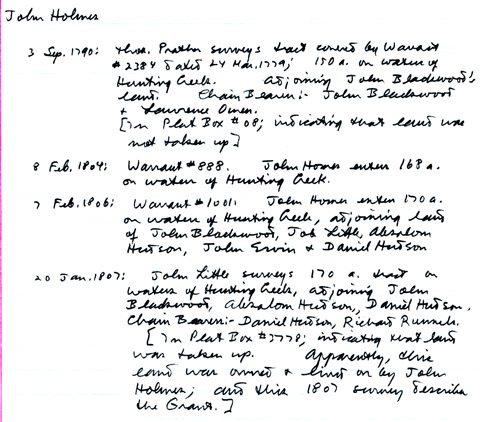 John Holmes
3 Sep. 1790: Thos. Prather surveys tract covered by Warrant
#2384 dated 24 Mar. 1779; 150 a. on waters of
Hunting Creek. adjoining John Blackwood's
land. Chain Bearers:- John Blackwood
& Lawrence Owen.
[In Plat Box #08; indicating that land was
not taken up]
8 Feb. 1804: Warrant #888. John Homes enters 168 a.
on waters of Hunting Creek.
7 Feb. 1806: Warrant #1001. John Homes enters 170 a.
on waters of Hunting Creek, adjoining land
of John Blackwood, Job Little, Absalom
Hutson, John Ervin & Daniel Hutson
20 Jan. 1807: John Little surveys 170 a. tract on
waters of Hunting Creek, adjoining John
Blackwood, Absalom Hutson, Daniel Hutson.
Chain Bearers:- Daniel Hutson, Richard Runnels.
[In Plat Box #3778; indicating that land
was taken up. Apparently, this
land was owned & lived on by John
Holmes; and this 1807 survey describes
the Grant.]